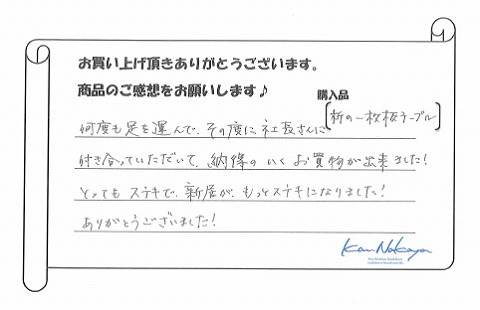 お買い上げ頂きありがとうございます。
商品のご感想をお願いします♪
購入品
栃の一枚板テーブル
何度も足を運んで、その度に社長さんに
付き合っていただいて、納得のいくお買物が出来ました!
とってもステキで、新居が、もっとステキになりました!
ありがとうございました!
Kan Nakaya